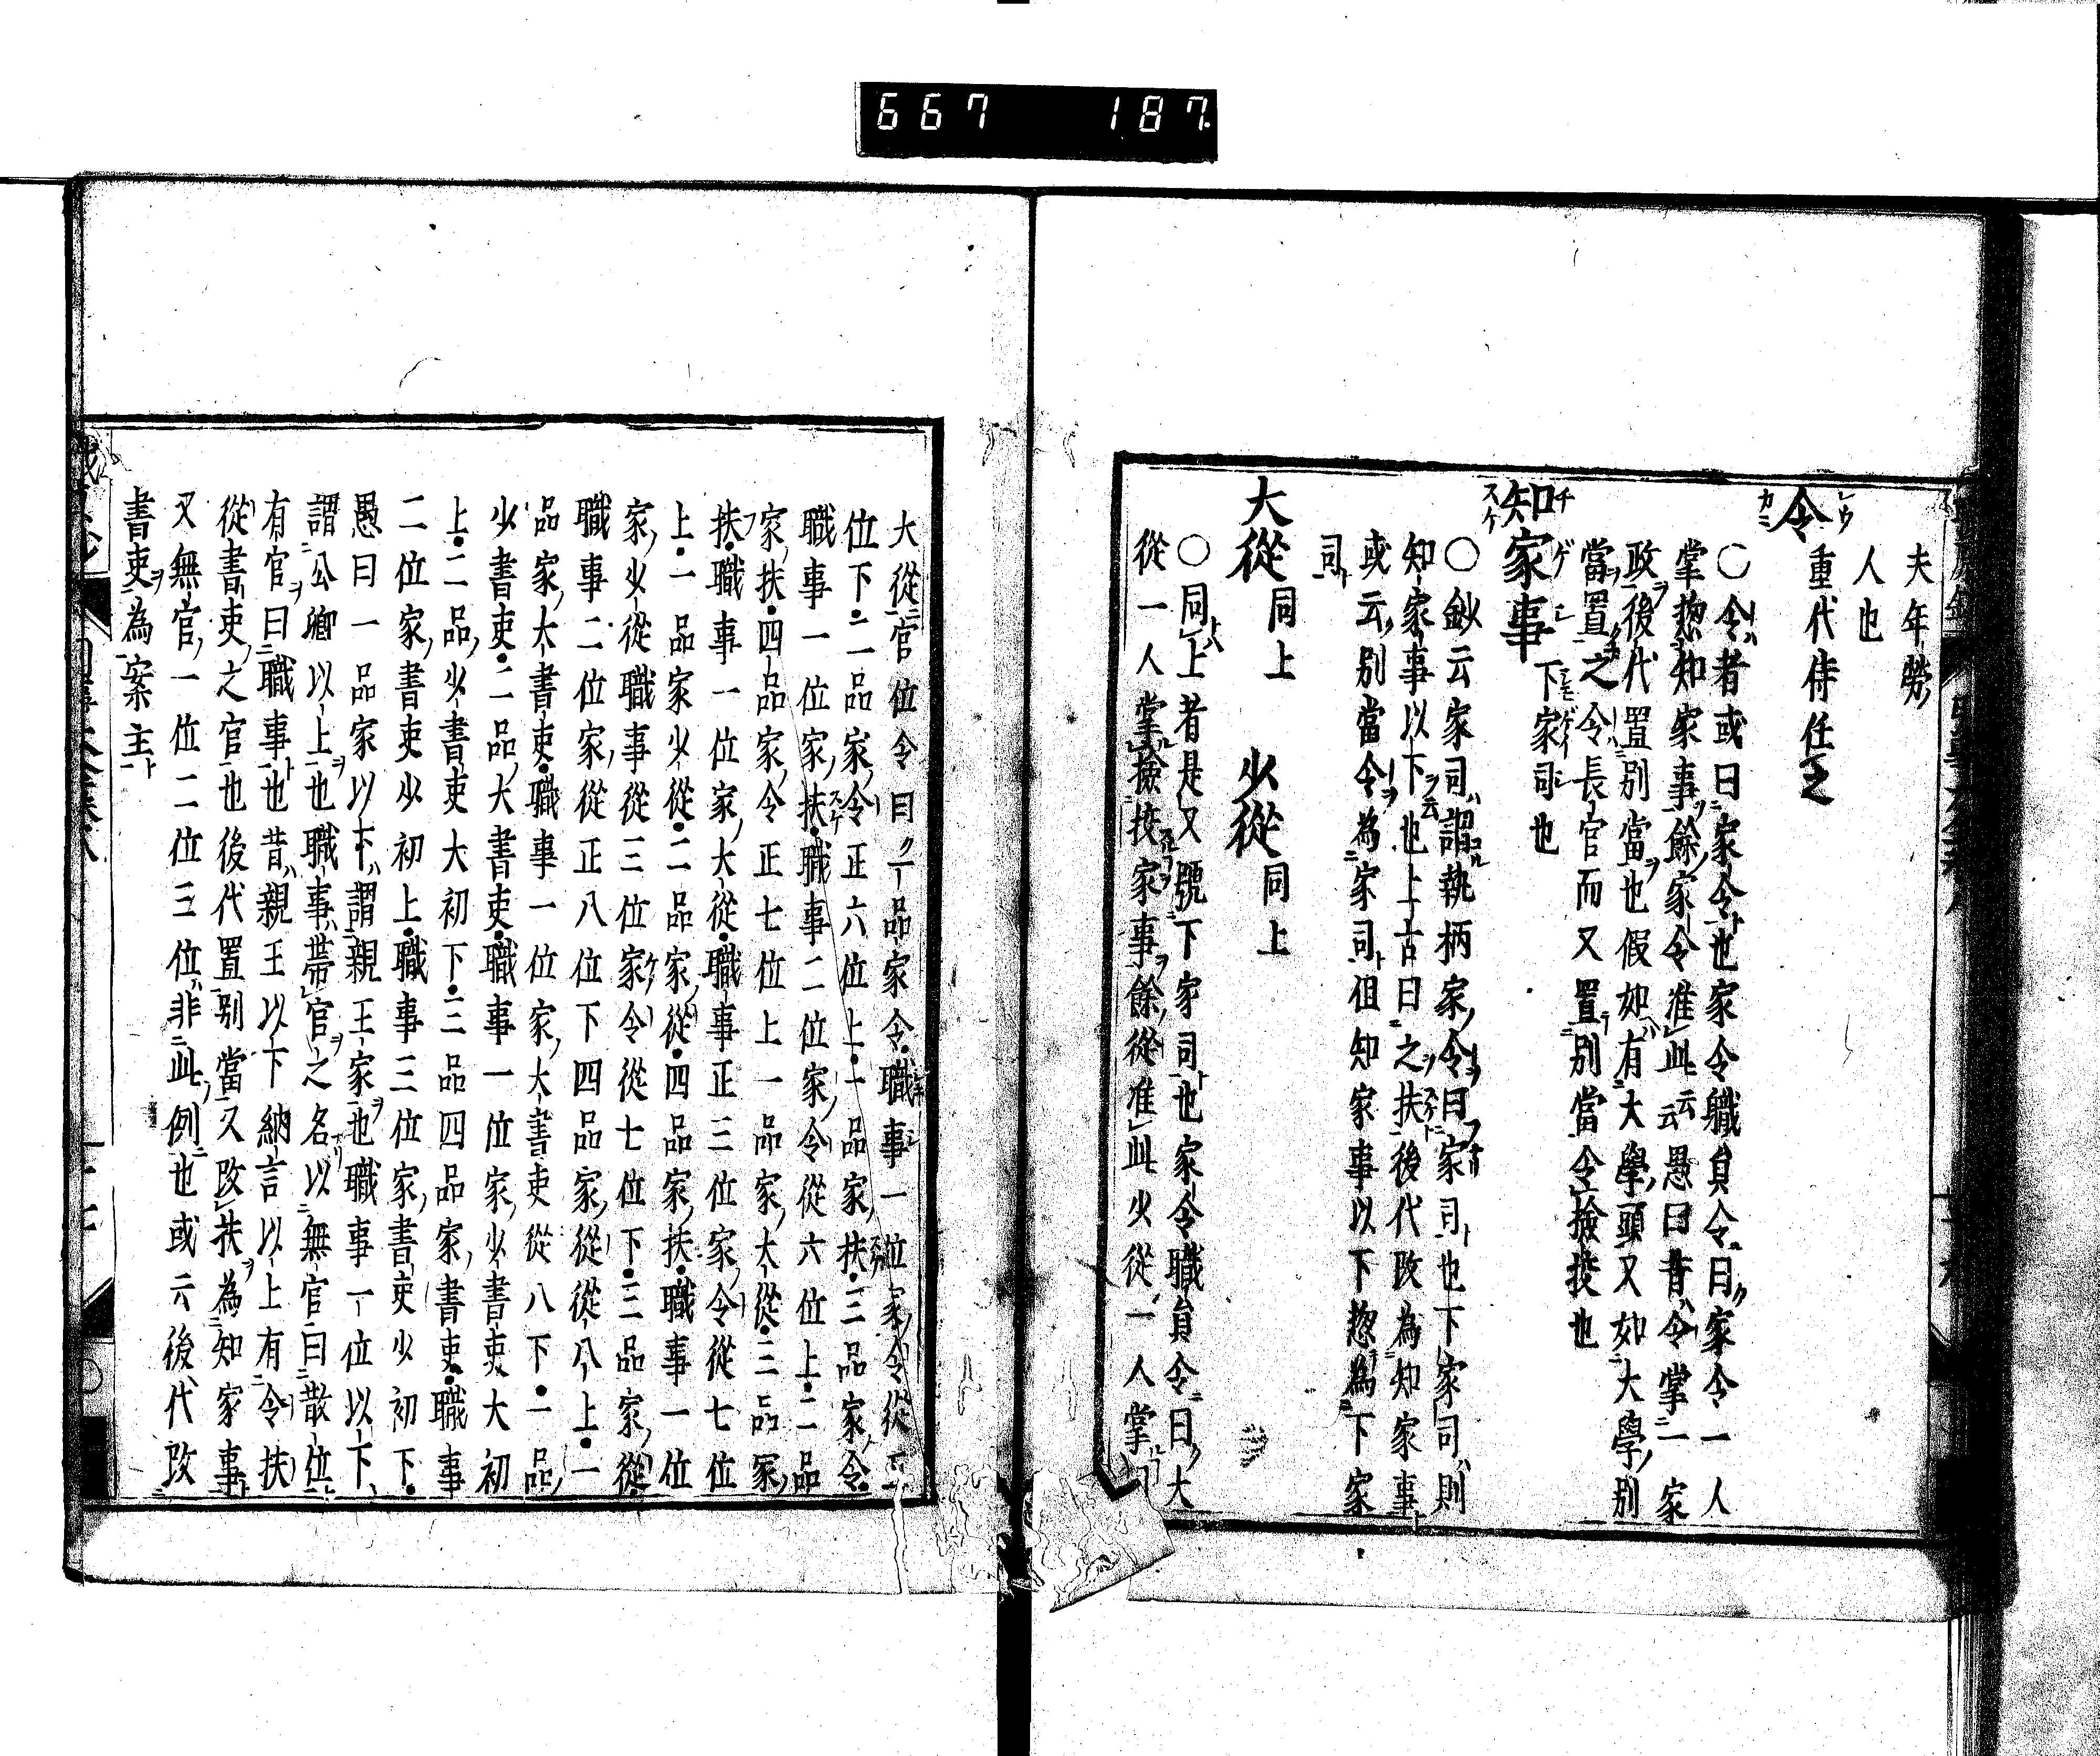 667 187
夫年勞
人也
令 重代侍任之
〇令者或曰家令也家令職員令曰家令一人
掌惣知家事餘家令准此云云愚曰昔令掌一家
政後代置別當也假如有大學頭又如大學別
當置之令長官而又置別當令撿挍也
知家事 下家司也
〇鈔云家司謂執柄家令曰家司也下家司則
知家事以下也上古曰之扶後代改為知家事
或云別當令為家司但知家事以下惣為下家
司
大從 同上 少從 同上
〇同上者是又號下家司也家令職員令曰大
從一人掌撿挍家事餘從准此少從一人掌
大從官位令曰一品家令職事一位家令從五
位下二品家令正六位上一品家扶三品家令
職事一位家扶職事二位家令從六位上二品
家扶四品家令正七位上一品家大從三品家
扶職事一位家大從職事正三位家令從七位
上一品家少從二品家從四品家扶職事一位
家少從職事從三位家令從七位下三品家從
職事二位家從正八位下四品家從從八上一
品家大書吏職事一位家大書吏從八下一品
少書吏二品大書吏職事一位家少書吏大初
上二品少書吏大初下三品四品家書吏職事
二位家書吏少初上職事三位家書吏少初下
愚曰一品家以下謂親王家也職事一位以下
謂公卿以上也職事帶官之名以無官曰散位
有官曰職事也昔親王以下納言以上有令扶
從書吏之官也後代置別當又改扶為知家事
又無官一位二位三位非此例也或云後代改
書吏為案主